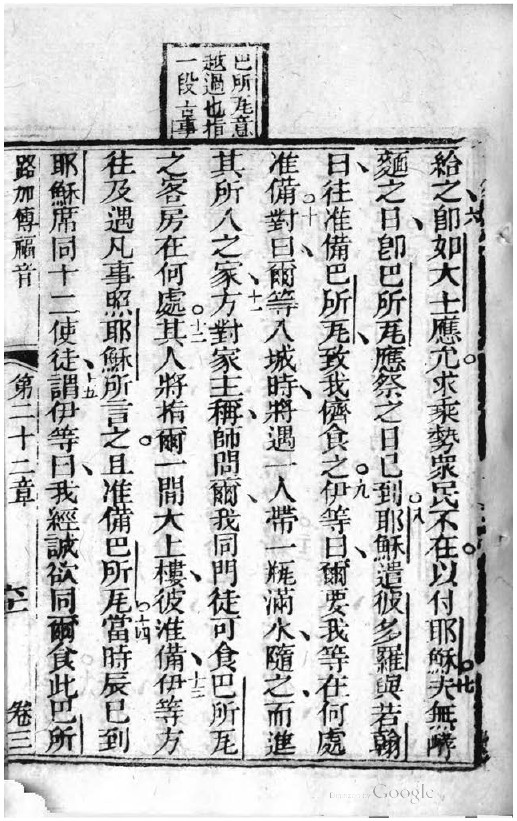 巴所瓦意
越過也指
一段古事
給之卽如大士應允求乘勢衆民不在以付耶穌夫無酵
六
七
麵之日卽巴所瓦應祭之日已到耶穌遣彼多羅與若翰
八
曰往准備巴所瓦致我儕食之伊等曰爾要我等在何處
九
准備對曰爾等入城時將遇一人帶一瓶滿水隨之而進
十
其所入之家方對家主稱師問爾我同門徒可食巴所瓦
十一
之客房在何處其人將指爾一間大上樓彼准備伊等方
十二
十三
往及遇凡事照耶穌所言之且准備巴所瓦當時辰已到
十四
耶穌席同十二使徒謂伊等曰我經誠欲同爾食此巴所
十五
路加傳福音 第二十二章 卷三
Digitized by Google